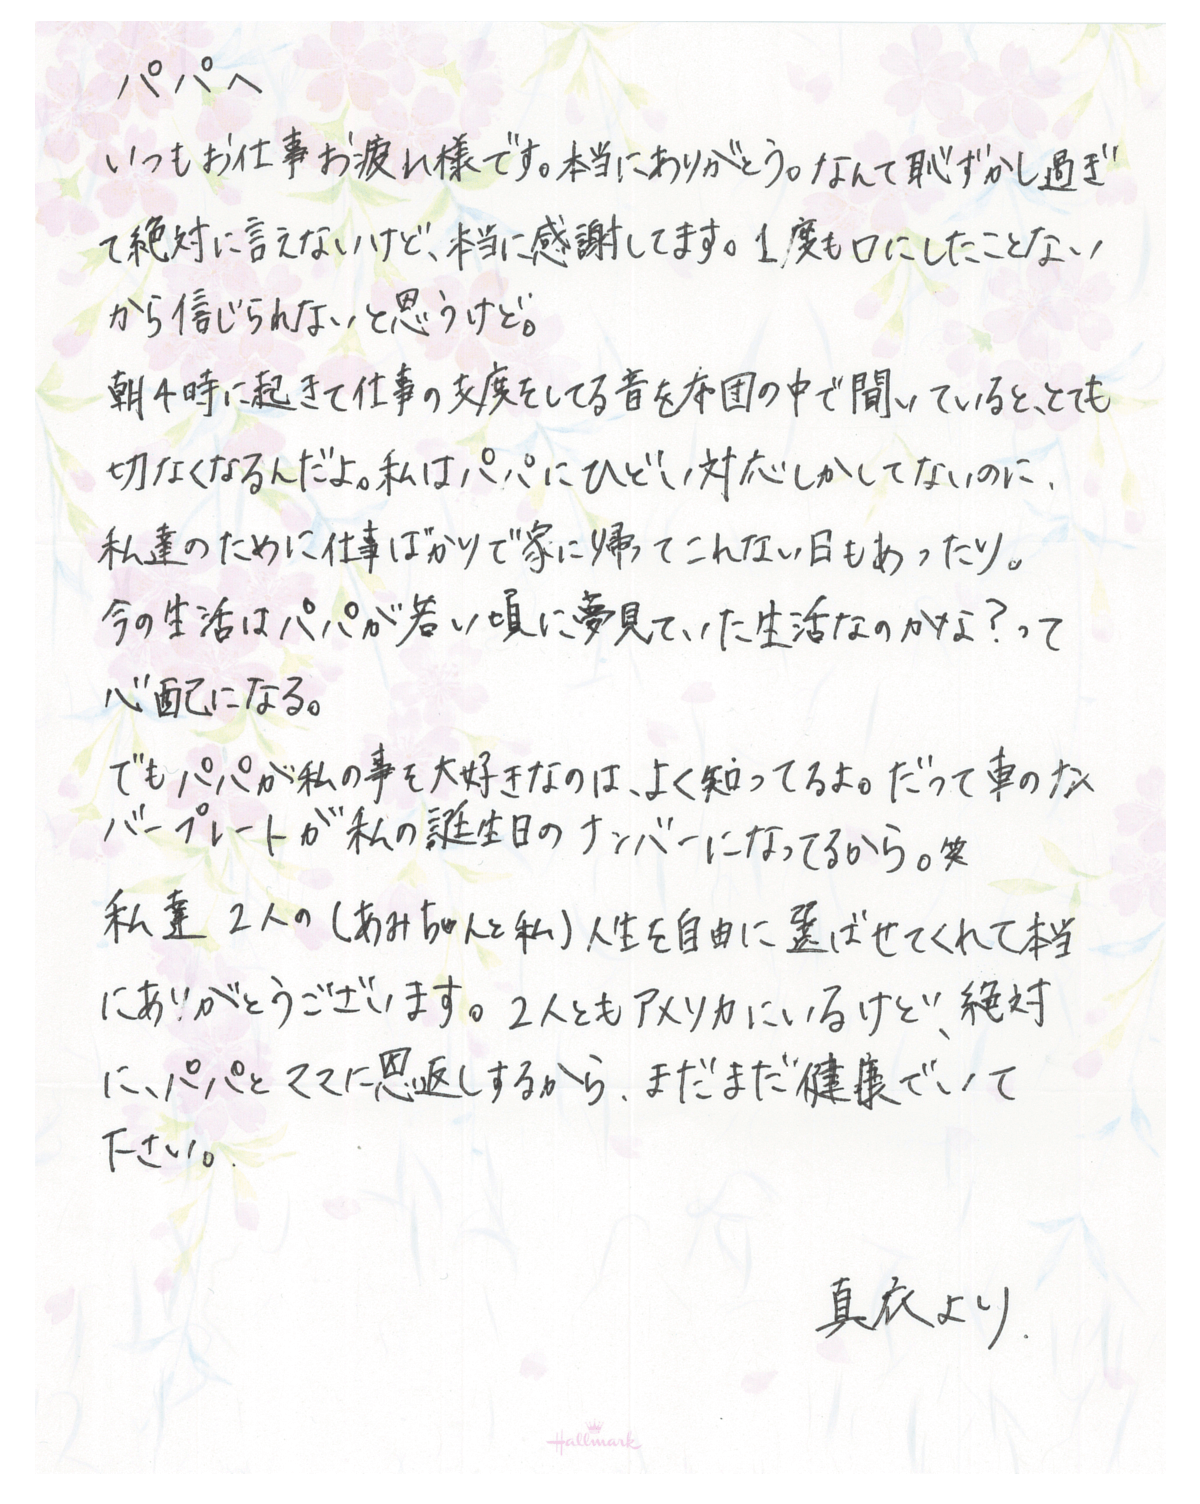 パパへ
いつもお仕事お疲れ様です。本当にありがとう。なんて恥ずかし過ぎ
て絶対に言えないけど、本当に感謝してます。1度も口にしたことない
から信じられないと思うけど。
朝4時に起きて仕事の支度をしてる音を布団の中で聞いていると、とても
切なくなるんだよ。私はパパにひどい対応しかしてないのに、
私達のために仕事ばかりで家に帰ってこれない日もあったり。
今の生活はパパが若い頃に夢見ていた生活なのかな?って
心配になる。
でもパパが私の事を大好きなのは、よく知ってるよ。だって車のナン
バープレートが私の誕生日のナンバーになってるから。笑
私達 2人の(あみちゃんと私)人生を自由に選ばせてくれて本当
にありがとうございます。2人ともアメリカにいるけど、絶対
に、パパとママに恩返しするから、まだまだ健康でいて
下さい。
真衣より.
Hallmark